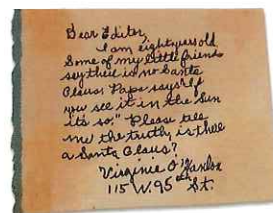 Dear Editor,
I am eight years old.
Some of my little friends
say there is no Santa
Claus. Papa says "If
you see it in the Sun
its so." Please tell
me the truth, is there
a Santa Claus?
Virginia O'Hanlon
115 W. 95th St.